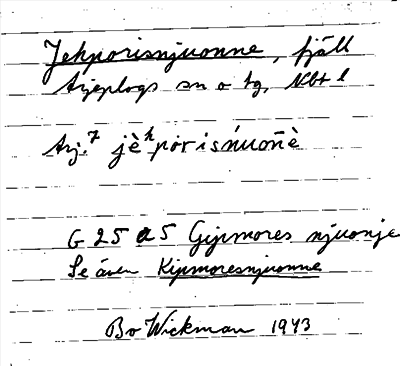 Jekporisnjuonne, fjäll
Arjeplogs sn o tg, Nbt l
Arj.7 jèʰporisńuoñè
G 25 a5 Gipmores njuonje
Se även Kipmoresnjuonne
Bo Wickman 1943